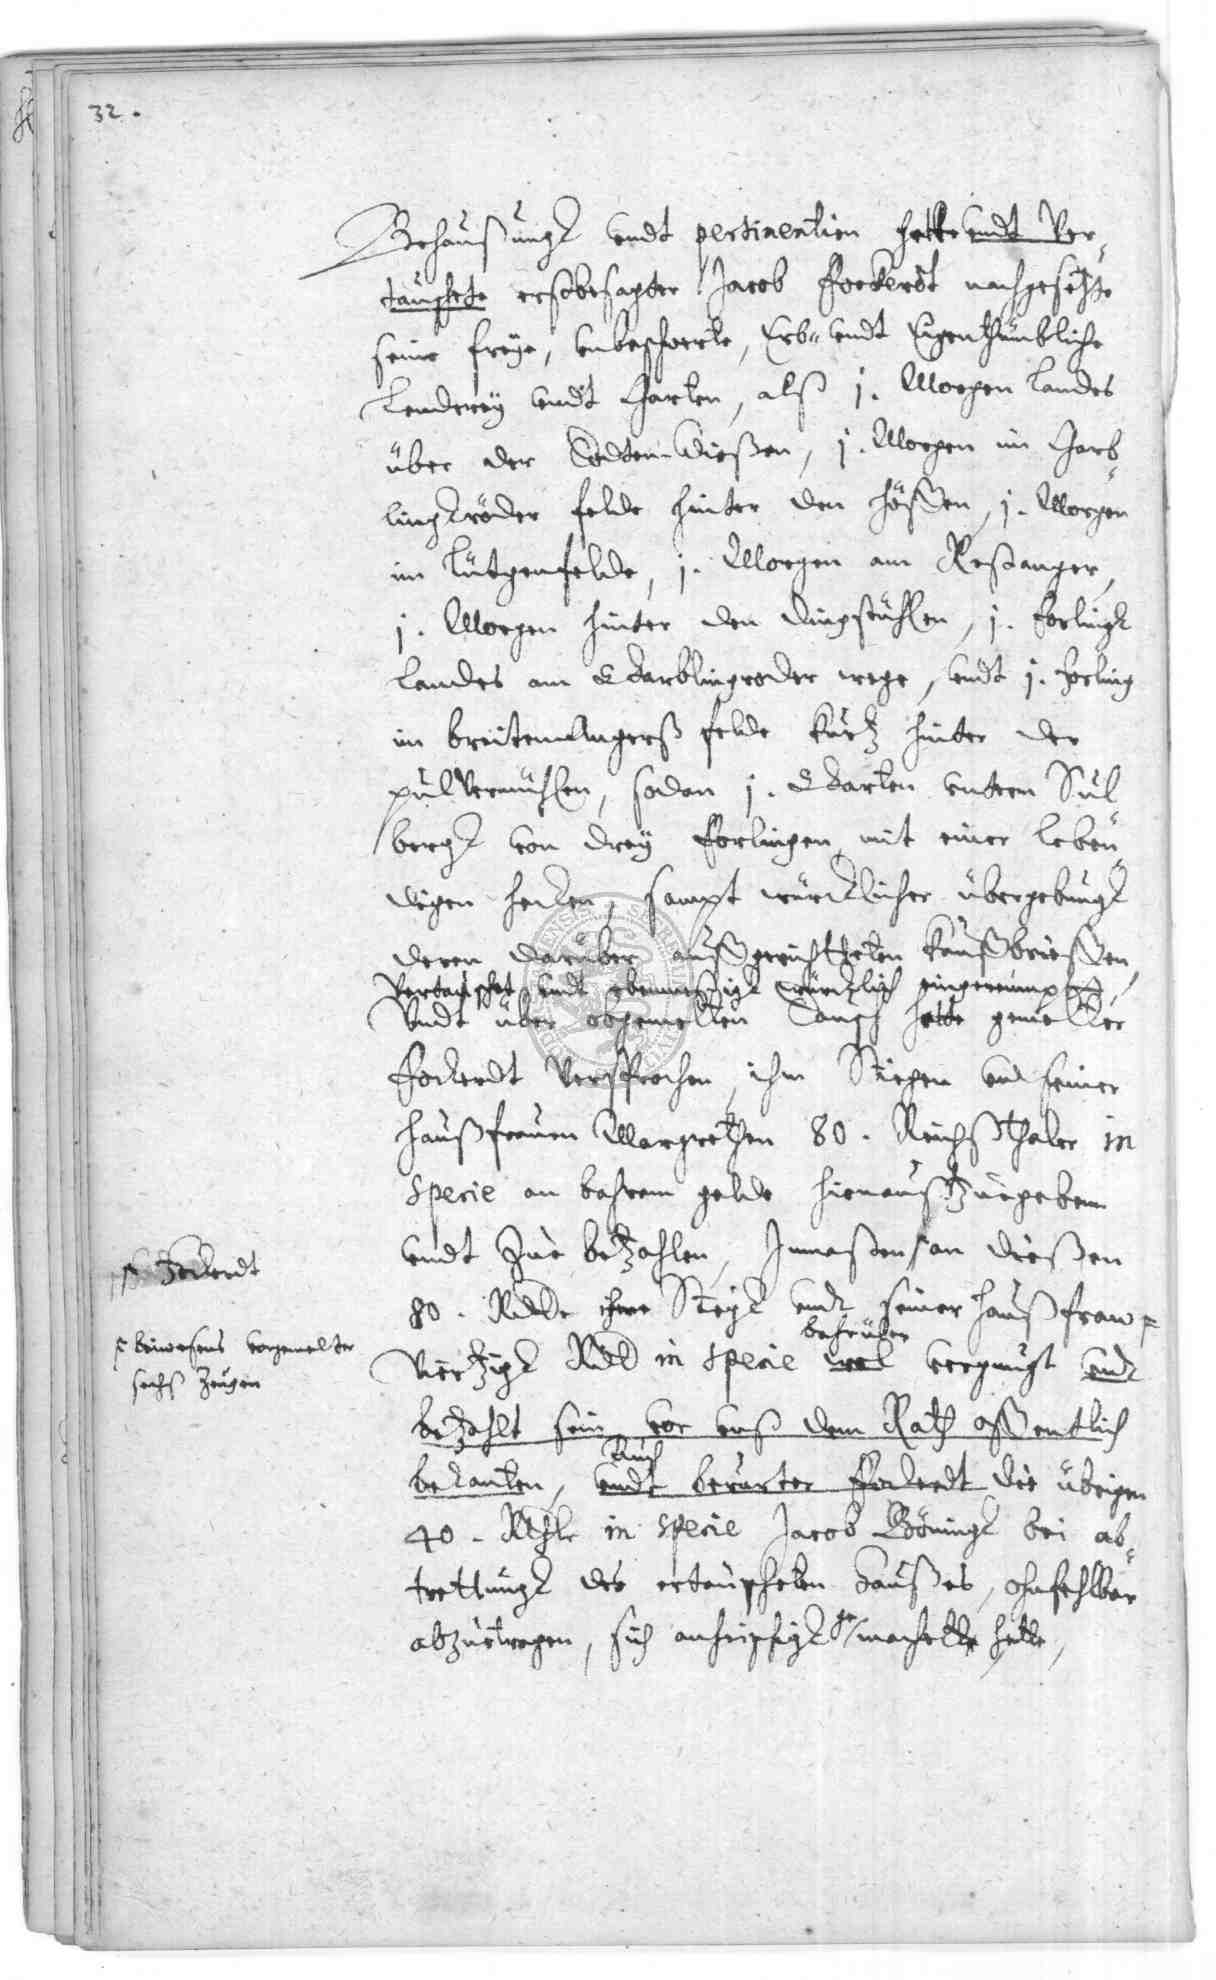 32.
Behaußungk undt pertinentien hette undt Ver-
tauschete erstbesagter Jacob Fockerodt nachgesetzte
seine freye, unbeschwerte, Erb- undt Eigenthümbliche
Lenderey undt Garten, alß j. Morgen Landes
über der Wießen, j. Morgen im Garb-
lingkröder felde hinter den Höffen, j. Morgen
im Lütgenfelde, j. Morgen am Roßanger,
j. Morgen hinter den Dingstühlen, j. Forlingk
Landes am Garblingroder wege, undt j. Forling
im breitenangerß felde kurtz hinter der
pulvermühlen, sodan j. Garten unterm Sul-
bergk von drey Forlingen, mit einer leben-
digen hecken, sampt würcklicher übergebungk
deren darüber außgerichteten kauffbrieffen
Vertauschet undt würcklich eingereumpt,
Undt über obgemelten Tausch hette gemelter
Fockerodt Versprochen, ihm und seiner
haußfrauen Margrethen 80. Reichßthaler in
specie an bahrem gelde hienauß zuegeben
undt zue bezahlen, Inmaßen an dießen
80. Rthlr undt seiner haußfraw
behrüter
Viertzigk Rthlr in specie wol vergnugt undt
bezahlt sein vor unß dem Rath offentlich
Auch
bekanten, undt berürter Fockerodt die übrigen
40. Rthlr in specie Jacob bei ab-
trettungk des ertauscheten Haußes, ohnfehlbar
abzuetragen, sich anheischigk gemachet hette,
Fockerodt
beiwesens vorgemelter
sechs Zeugen